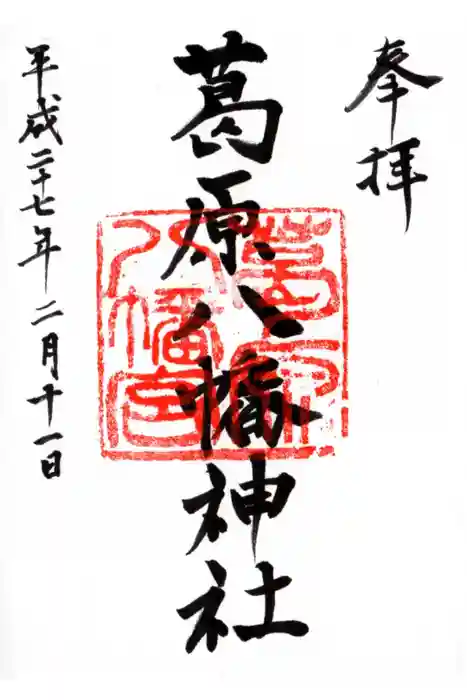 奉拝
葛原八幡神社
葛原八幡宮
平成二十七年二月十一日